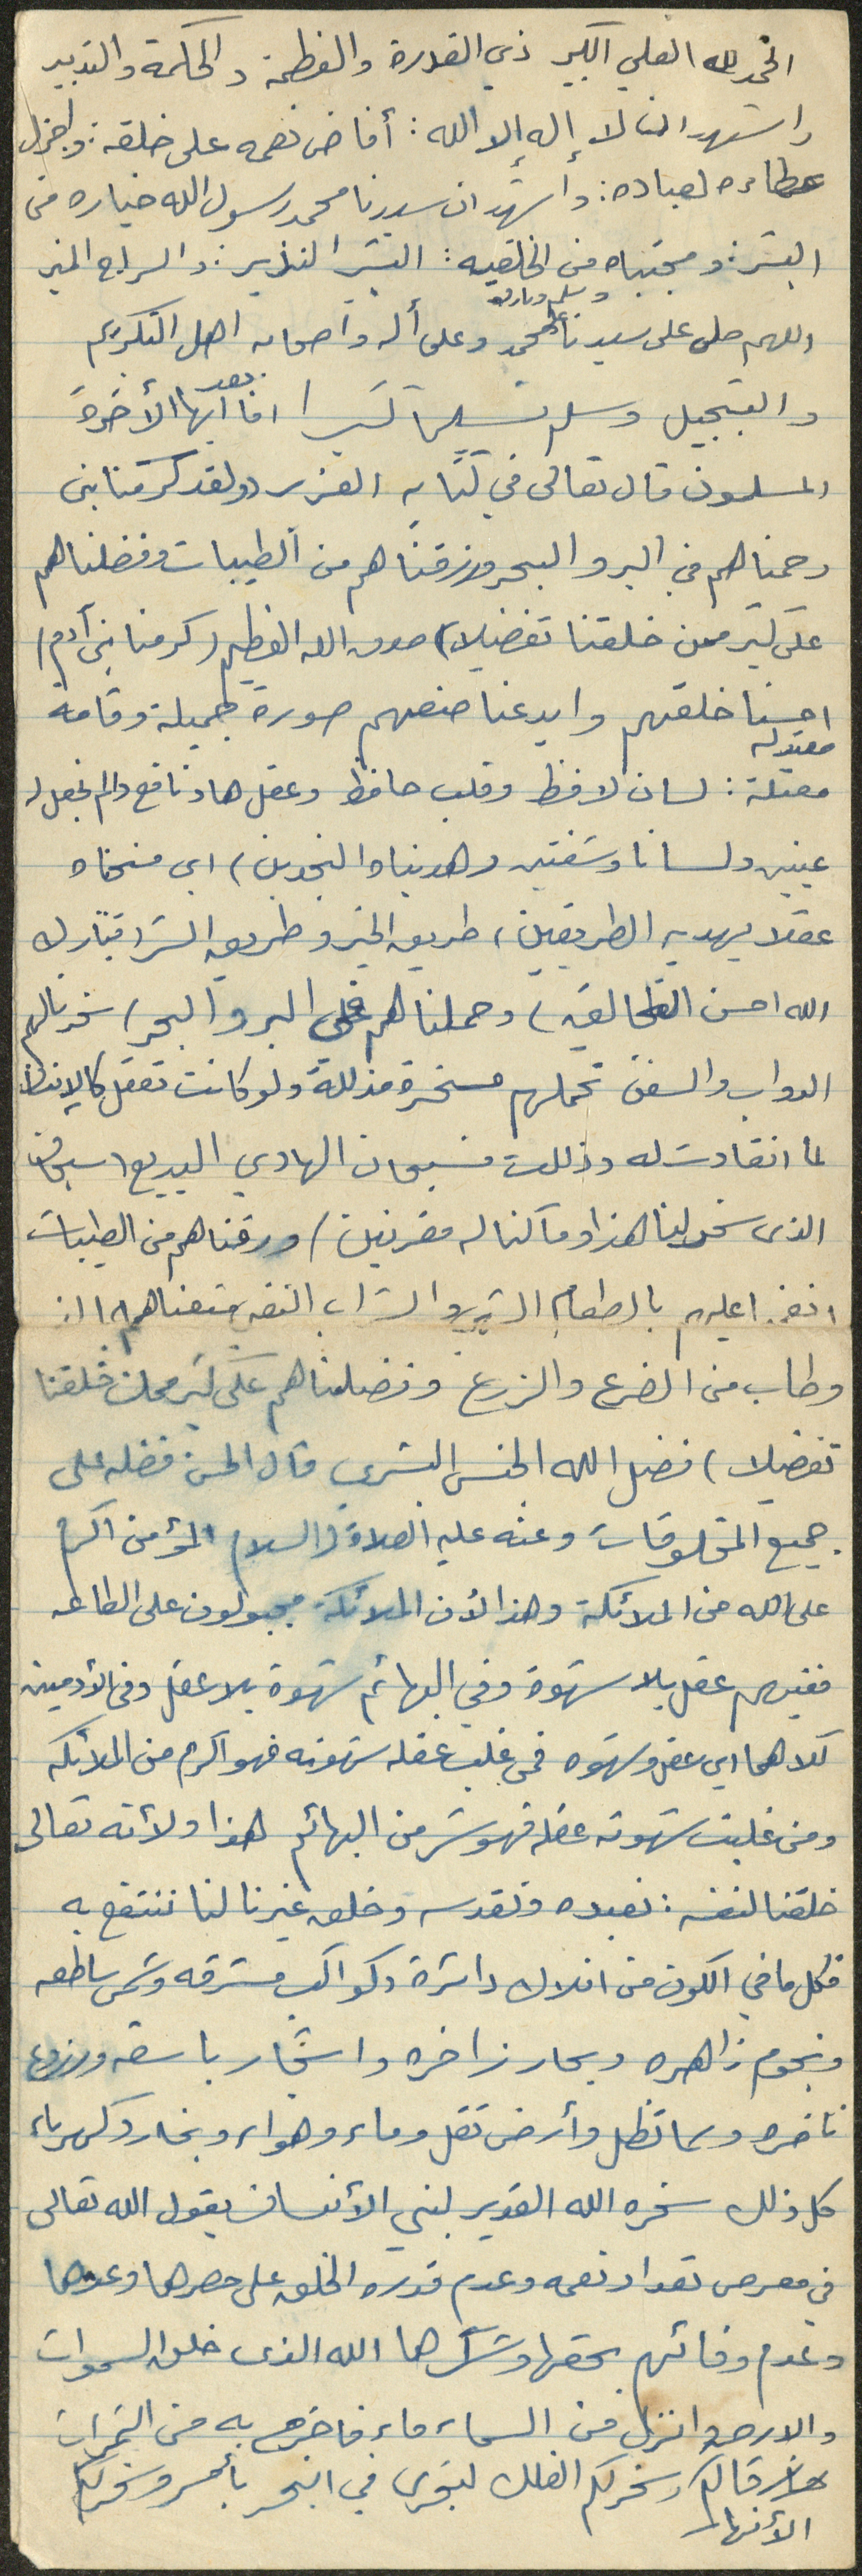 الحمد لله العلي الكبير ذي القدرة والعظمة والحكمة والتدبير
واشهد ان لا إله إلا الله : أفاض نعمه على خلقه : واجزل
عطاءه لعباده : وأشهد ان سيدنا محمد رسول الله خياره من
البشر : ومجتباه من الخلقيه : البشير النذير : والسراج المنير
وسلم وبارك
اللهم صلى على سيدنا محمد وعلى أله وأصحابه اهل التكريم
والتبجيل وسلم تسليما كثيرا اما بعد ايها الأخوة
المسلمون قال تعالى في كتابه العزيز (ولقد كرمنا بنى
وحملناهم في البر والبحر ورزقناهم من الطيبات وفضلناهم
على كثير ممن خلقنا تفضيلا) صدق الله العظيم (كرمنا بنى آدم)
احسنا خلقهم وابدعنا صنعهم صورة جميلة وقامة
معتدله
معتلة : لسان لافظ وقلب حافظ وعقل هاد نافع (الم نجعل له
عينين ولسانا وشفتين وهديناه النجدين) اي منحناه
عقلا يهديه الطريقين ، طريق الخير وطريق الشر (فتبارك
الله احسن الخالقين) وحملناهم في البر والبحر) سخرنا لهم
الدواب والسفن تحملهم مسخرة مذللة ولو كانت تعقل كالإنسان
لما انقادت له وذللت فسبحان الهادي البديع (سبحان
الذى سخر لنا هذا وما كنا له مقرنين) ورزقناهم من الطيبات
انعمنا عليهم بالطعام الشهي والشراب النقي متعناهم
وطاب من الضرع والزرع وفضلناهم على كثير ممن خلقنا
تفضيلا) فضل الله الجنس البشري قال الحسن فضله على
جميع المخلوقات وعنه عليه الصلاة والسلام المؤمن اكرم
على الله من الملائكة وهذا لأن الملائكة مجبولون على الطاعه
ففيهم عقل بلا شهوة وفي البهائم شهوة بلا عقل وفى الأدمين
كلاهما اي عقل وشهوه فمن غلب عقله شهوته فهو اكرم من الملائكه
ومن غلبت شهوته عقله فهو شر من البهائم هذا ولأنه تعالى
خلقنا لنفسه : نعبده ونقدسه وخلق غيرنا لنا ننتفع به
فكل ما في الكون من افلاك دائرة وكواكب مشرقه وشمس ساطعه
ونجوم زاهره وبحار زاخره واشجار باسقه وزروع
ناضره وسما تظل وأرض تقل وماء وهواء وبخار وكهرباء
كل ذلك سخره الله القدير لبني الأنسان يقول الله تعالى
في معرض تعداد نعمه وعدم قدرة الخلق على حصرها وعدها
وعدم وفائهم بحقها وشكرها الله الذى خلق السموات
والارض وانزل من السماء ماء فاخرج به من الثمرات
رزقا لكم وسخر لكم الفلك لتجرى في البحر بأمره وسخر لكم
الأنهار